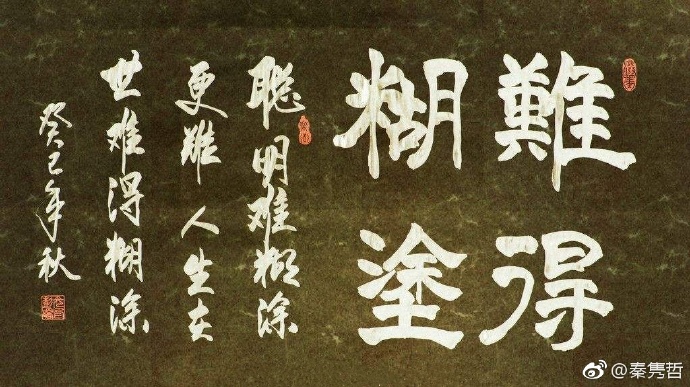 難得
糊塗
聪明难糊涂
更難人生在
世难得糊涂
癸巳年秋
@秦隽哲